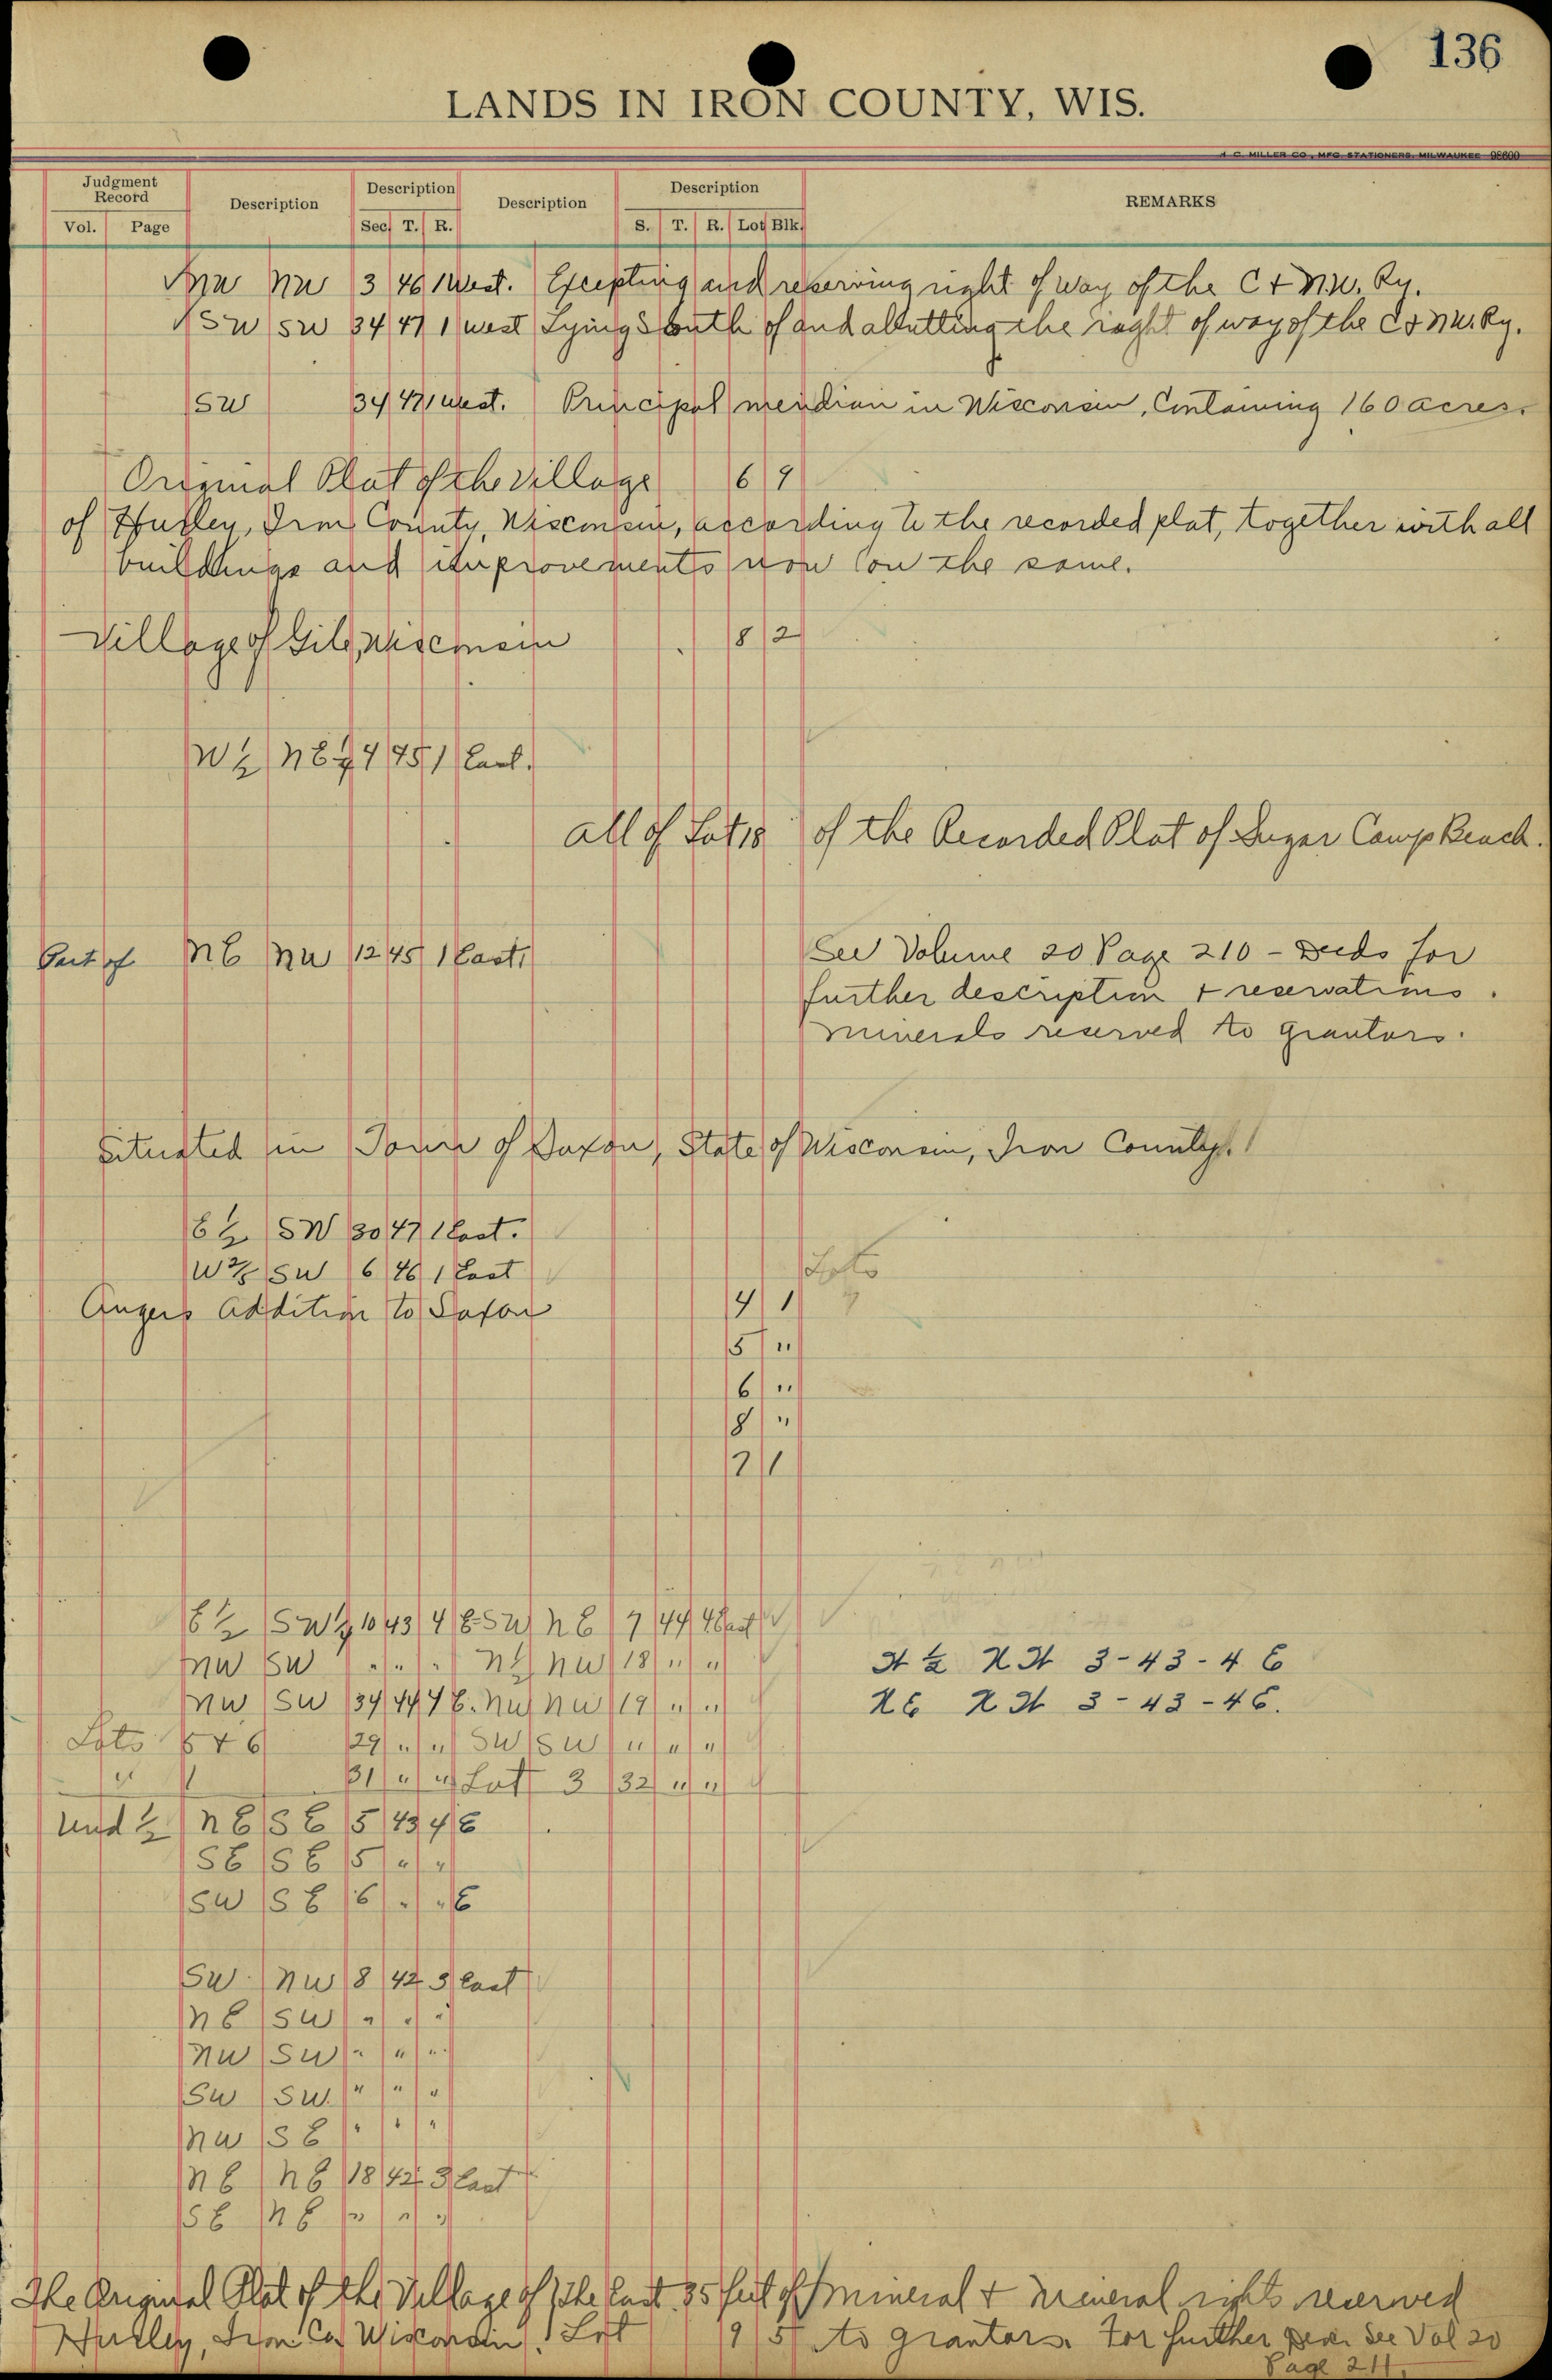 136
LANDS IN IRON COUNTY, WIS.
H. C. MILLER CO., MFG. STATIONERS, MILWAUKEE 98600
Judgment Record Description Description Description Description REMARKS
Vol. Page Sec. T. R. S. T. R. Lot Blk.
NW NW 3 46 1 West. Excepting and reserving right of way of the C & N.W. Ry.
SW SW 34 47 1 west Lying South of and abutting the right of way of the C & NW. Ry.
SW 34 47 1 west. Principal meridian in Wisconsin, Containing 160 acres.
Original Plat of the Village 6 9
of Hurley, Iron County, Wisconsin, according to the recorded plat, together with all
buildings and improvements now on the same.
Village of Gile, Wisconsin 8 2
W½ NE¼ 4 45 1 East.
All of Lot 18 of the Recorded Plat of Sugar Camp Beach.
Part of NE NW 12 45 1 East. See Volume 20 Page 210 - Deeds for
further description & reservations.
minerals reserved to grantors.
Situated in Town of Saxon, State of Wisconsin, Iron County.
E½ SW 30 47 1 East.
SW 6 46 1 East Lots
Angers Addition to Saxon 4 1
5 "
6 "
8 "
7 1
E½ SW¼ 10 43 4 E SW NE 7 44 4 East
NW SW " " " NW 18 " "
NW SW 34 44 4 E. NW NW 19 " "
N½ NW 3-43-4 E
NE NW 3-43-4E.
Lots 5 & 6 29 " " SW SW " " "
" 31 " " Lot 3 32 " "
Und ½ NE SE 5 43 4 E
SE SE 5 " "
SW SE 6 " " E
SW NW 8 42 3 East
NE SW " " "
NW SW " " "
SW SW. " " "
NW SE " " "
NE NE 18 42 3 East
SE NE " " "
The Original Plat of the Village of The East 35 feet of Mineral & Mineral rights reserved
Hurley, Iron Co. Wisconsin. Lot 9 5 to grantors. For further see Vol 20
Page 211.